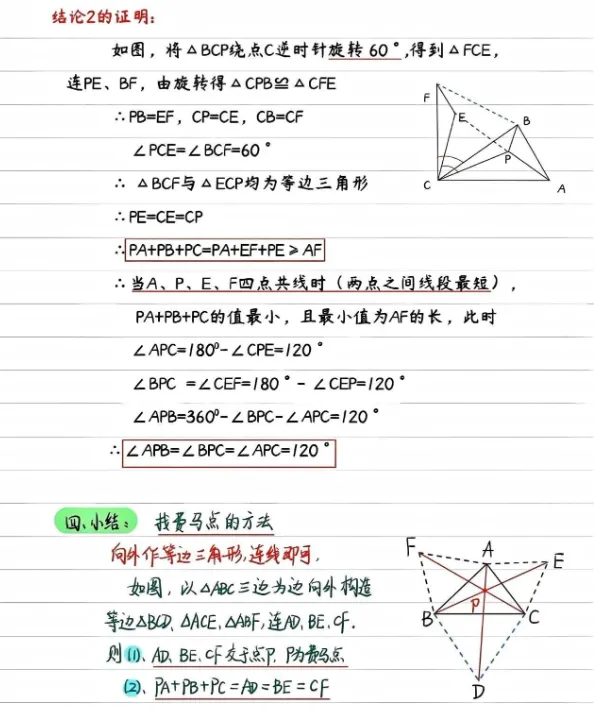 结论2的证明:
如图，将△BCP绕点C逆时针旋转 60°,得到△FCE,
连PE、BF，由旋转得△CPB≌△CFE
∴PB=EF，CP=CE，CB=CF
∠PCE=∠BCF=60°
∴ △BCF与△ECP均为等边三角形
∴PE=CE=CP
∴PA+PB+PC=PA+EF+PE≥AF
∴当A、P、E、F四点共线时（两点之间线段最短），
PA+PB+PC的值最小，且最小值为AF的长，此时
∠APC=180⁰-∠CPE=120°
∠BPC =∠CEF=180°- ∠CEP=120°
∠APB=360⁰-∠BPC-∠APC=120°
∴∠APB=∠BPC=∠APC=120°
F
E
B
P
C
A
四、小结: 找费马点的方法
向外作等边三角形,连线即可.
如图，以△ABC三边为边向外构造
等边△BCD、△ACE、△ABF,连AD、BE、CF.
则(1)、AD、BE、CF交于点P，P为费马点
(2)、PA+PB+PC=AD=BE=CF
F
A
E
P
B
C
D